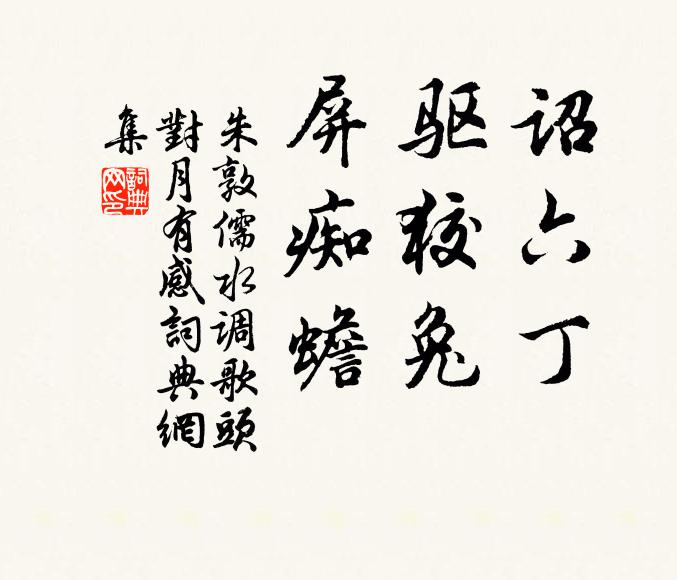 诏六丁
驱狡兔
屏痴蟾
朱敦儒水调歌頭
對月有感詞典網
集
詞典
网印